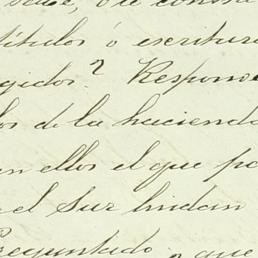 títulos ó escritura
gidos? Respond
os de la hacienda
en ellos el que pa
el Sur lindan
Preguntado, que